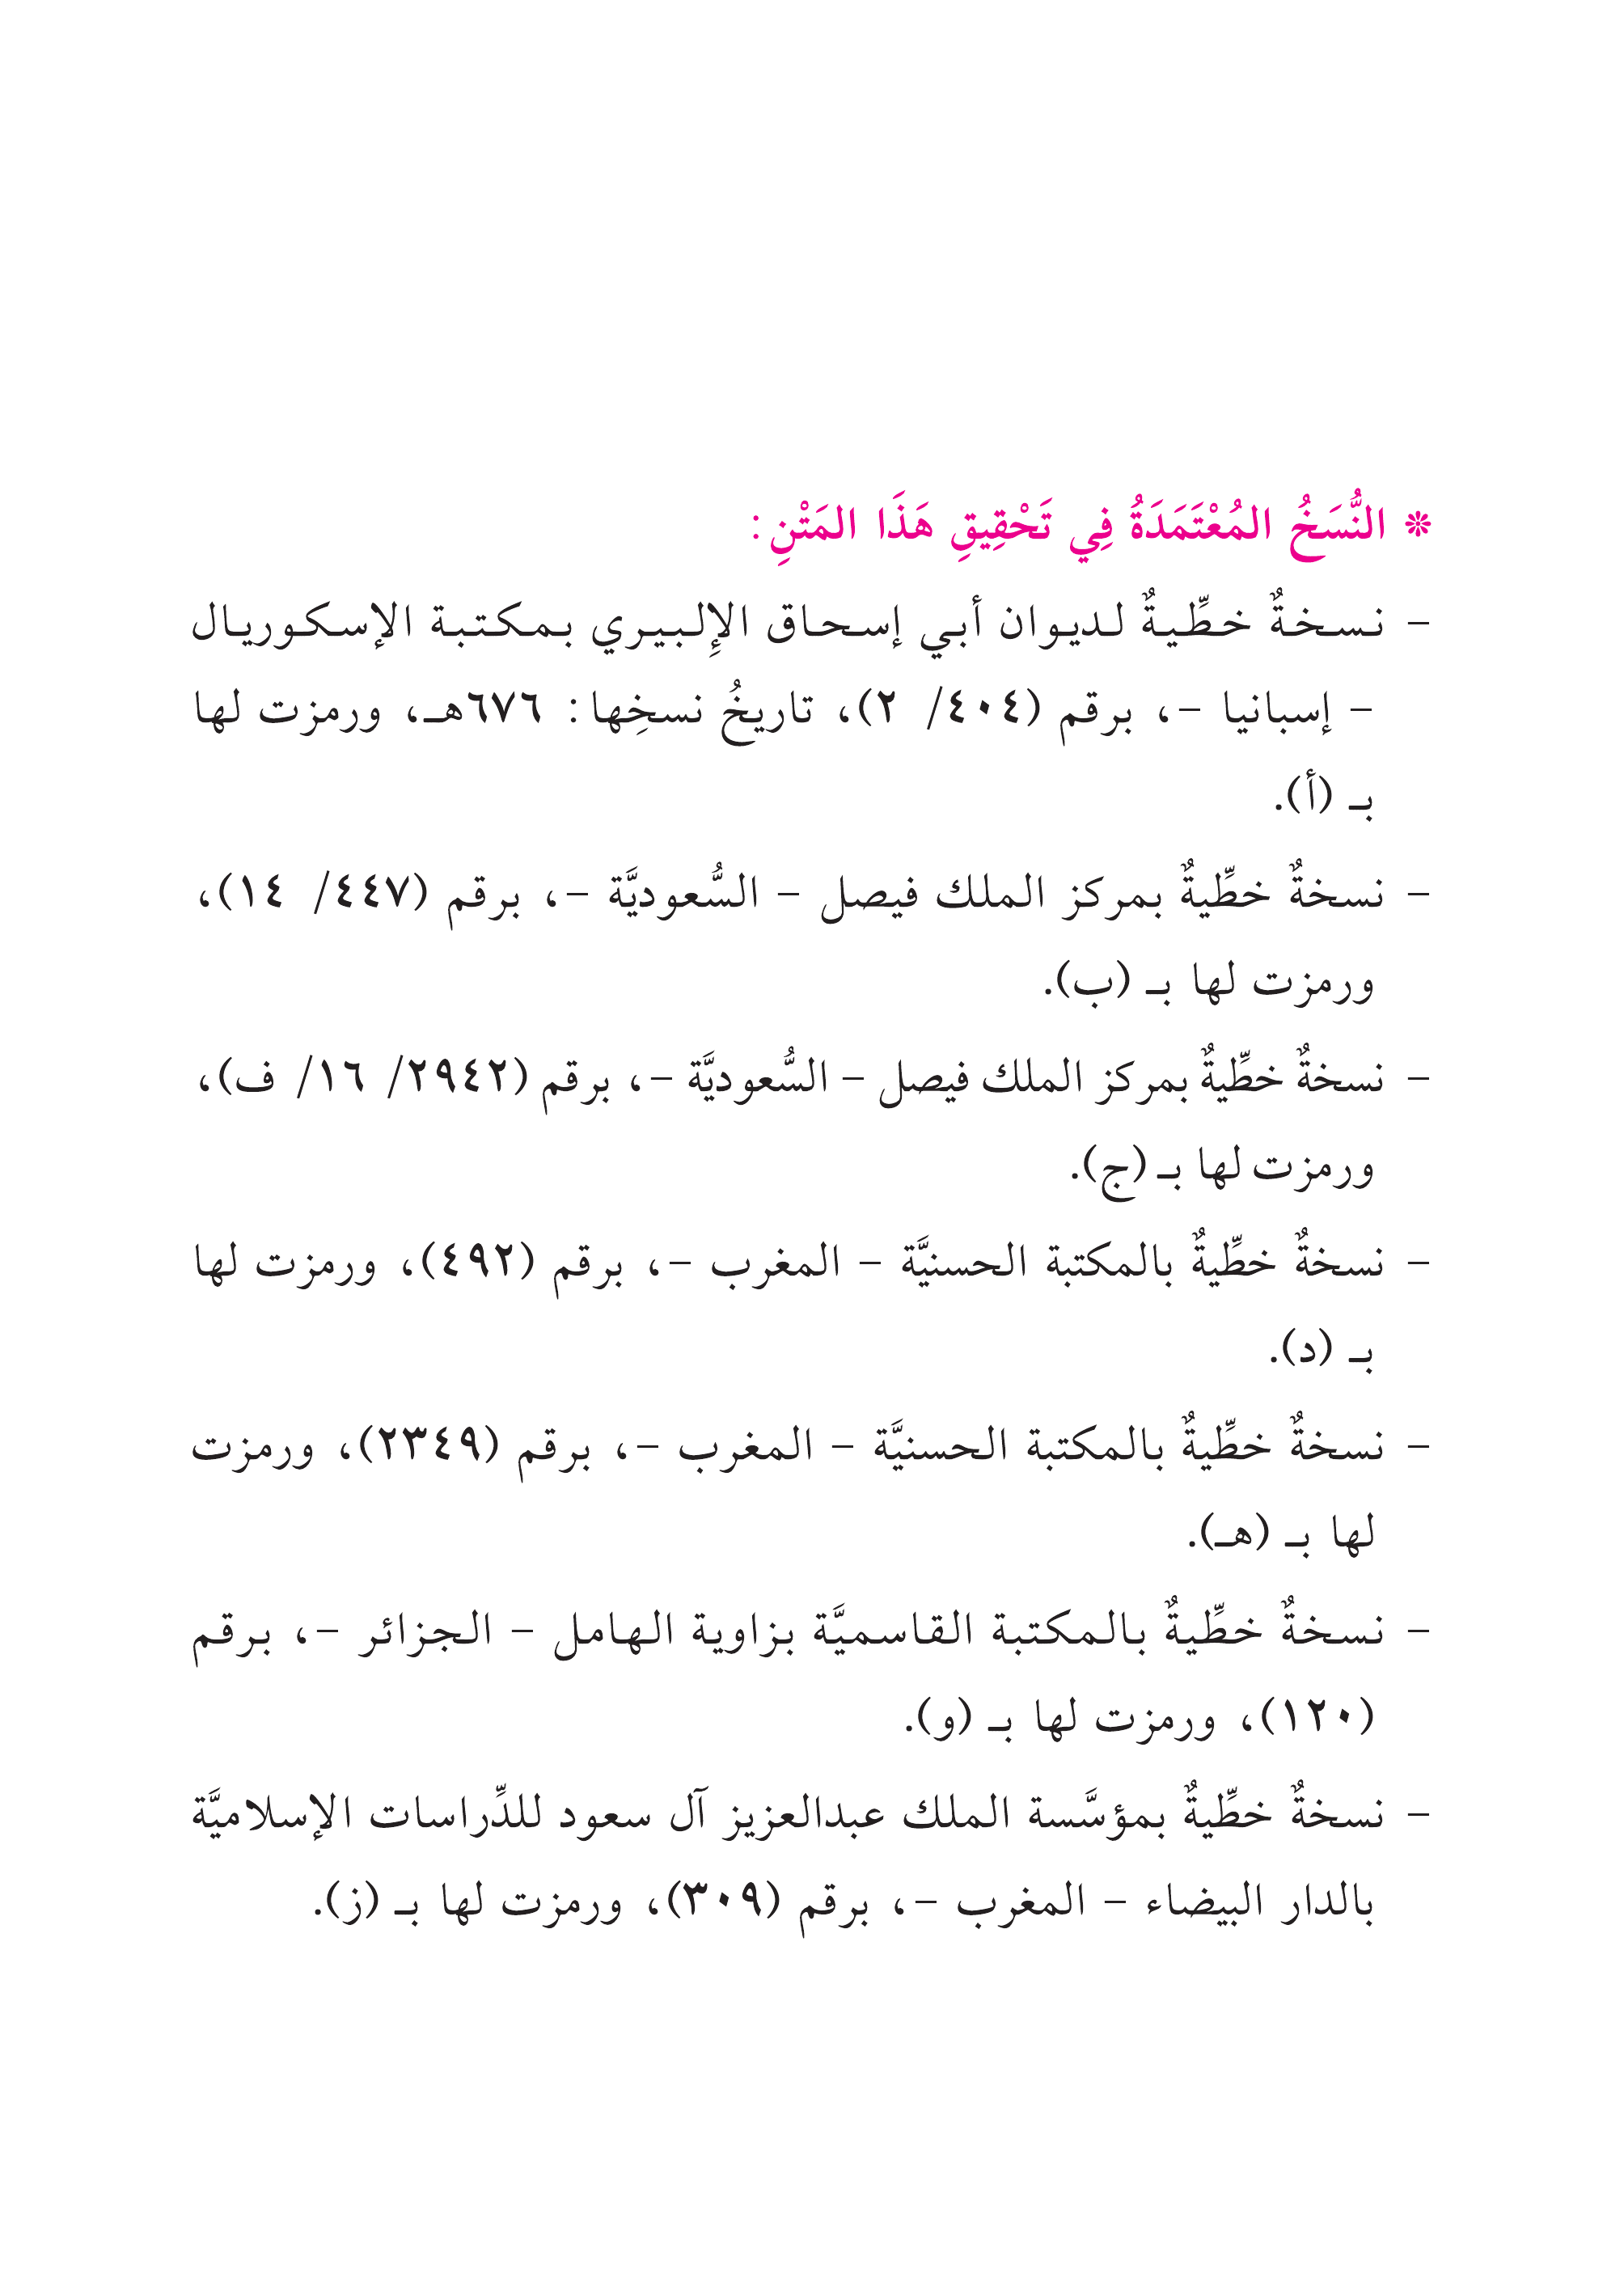 * النُّسَخُ المُعْتَمَدَةُ فِي تَحْقِيقِ هَذَا المَتْنِ:
- نسخةٌ خطِّيةٌ لديوان أبي إسحاق الإِلبيري بمكتبة الإسكوريال
- إسبانيا -، برقم (٤٠٤/ ٢)، تاريخُ نسخِها: ٦٧٦هـ، ورمزت لها
بـ (أ).
- نسخةٌ خطِّيةٌ بمركز الملك فيصل - السُّعوديَّة -، برقم (٤٤٧/ ١٤)،
ورمزت لها بـ (ب).
- نسخةٌ خطِّيةٌ بمركز الملك فيصل - السُّعوديَّة -، برقم (٢٩٤٢/ ١٦/ ف)،
ورمزت لها بـ (ج).
- نسخةٌ خطِّيةٌ بالمكتبة الحسنيَّة - المغرب -، برقم (٤٩٢)، ورمزت لها
بـ (د).
- نسخةٌ خطِّيةٌ بالمكتبة الحسنيَّة - المغرب -، برقم (٢٣٤٩)، ورمزت
لها بـ (هـ).
- نسخةٌ خطِّيةٌ بالمكتبة القاسميَّة بزاوية الهامل - الجزائر -، برقم
(١٢٠)، ورمزت لها بـ (و).
- نسخةٌ خطِّيةٌ بمؤسَّسة الملك عبدالعزيز آل سعود للدِّراسات الإسلاميَّة
بالدار البيضاء - المغرب -، برقم (٣٠٩)، ورمزت لها بـ (ز).